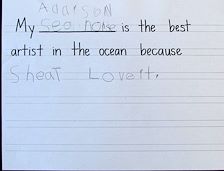 Addison
My sea horse is the best
artist in the ocean because
Sheat Loveit.